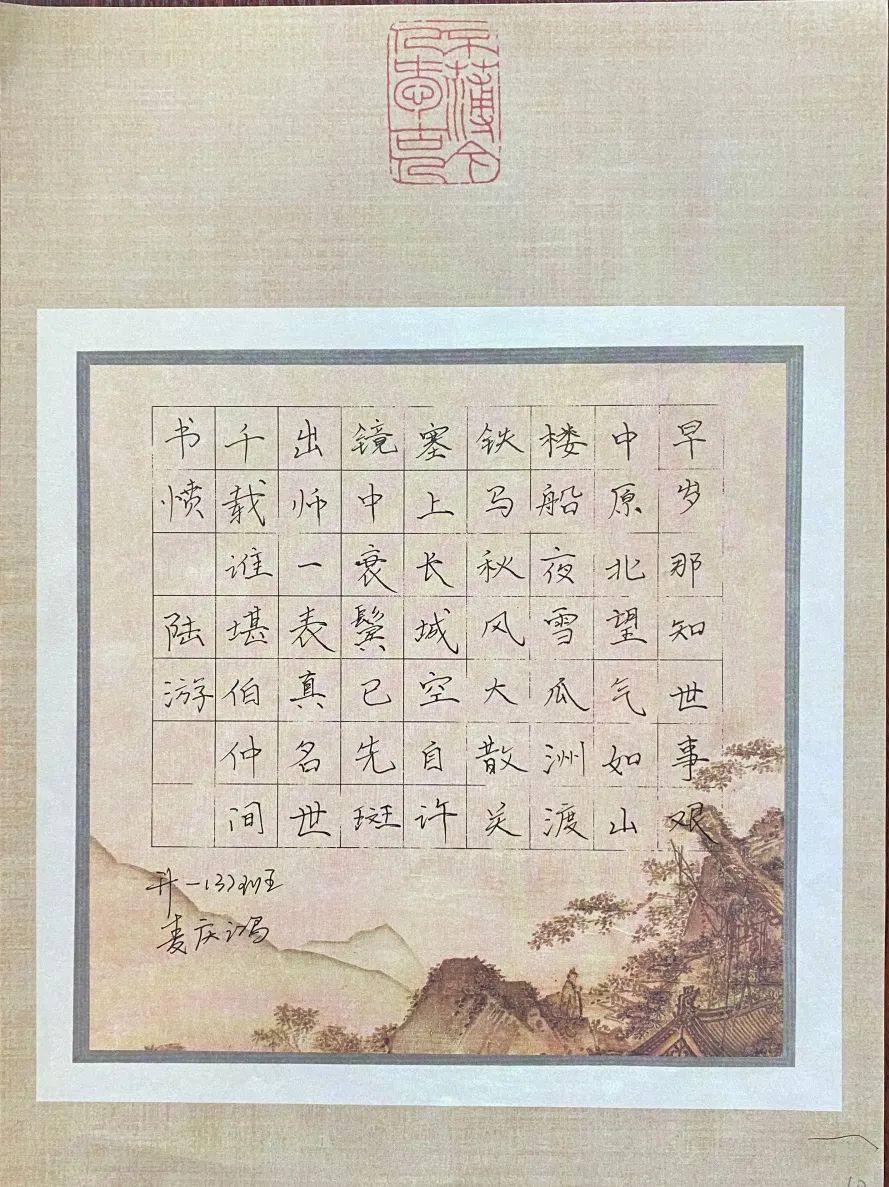 早岁那知世事艰
中原北望气如山
楼船夜雪瓜洲渡
铁马秋风大散关
塞上长城空自许
镜中衰鬓已先斑
出师一表真名世
千载谁堪伯仲间
书愤 陆游
升一(3)班
麦庆鸿